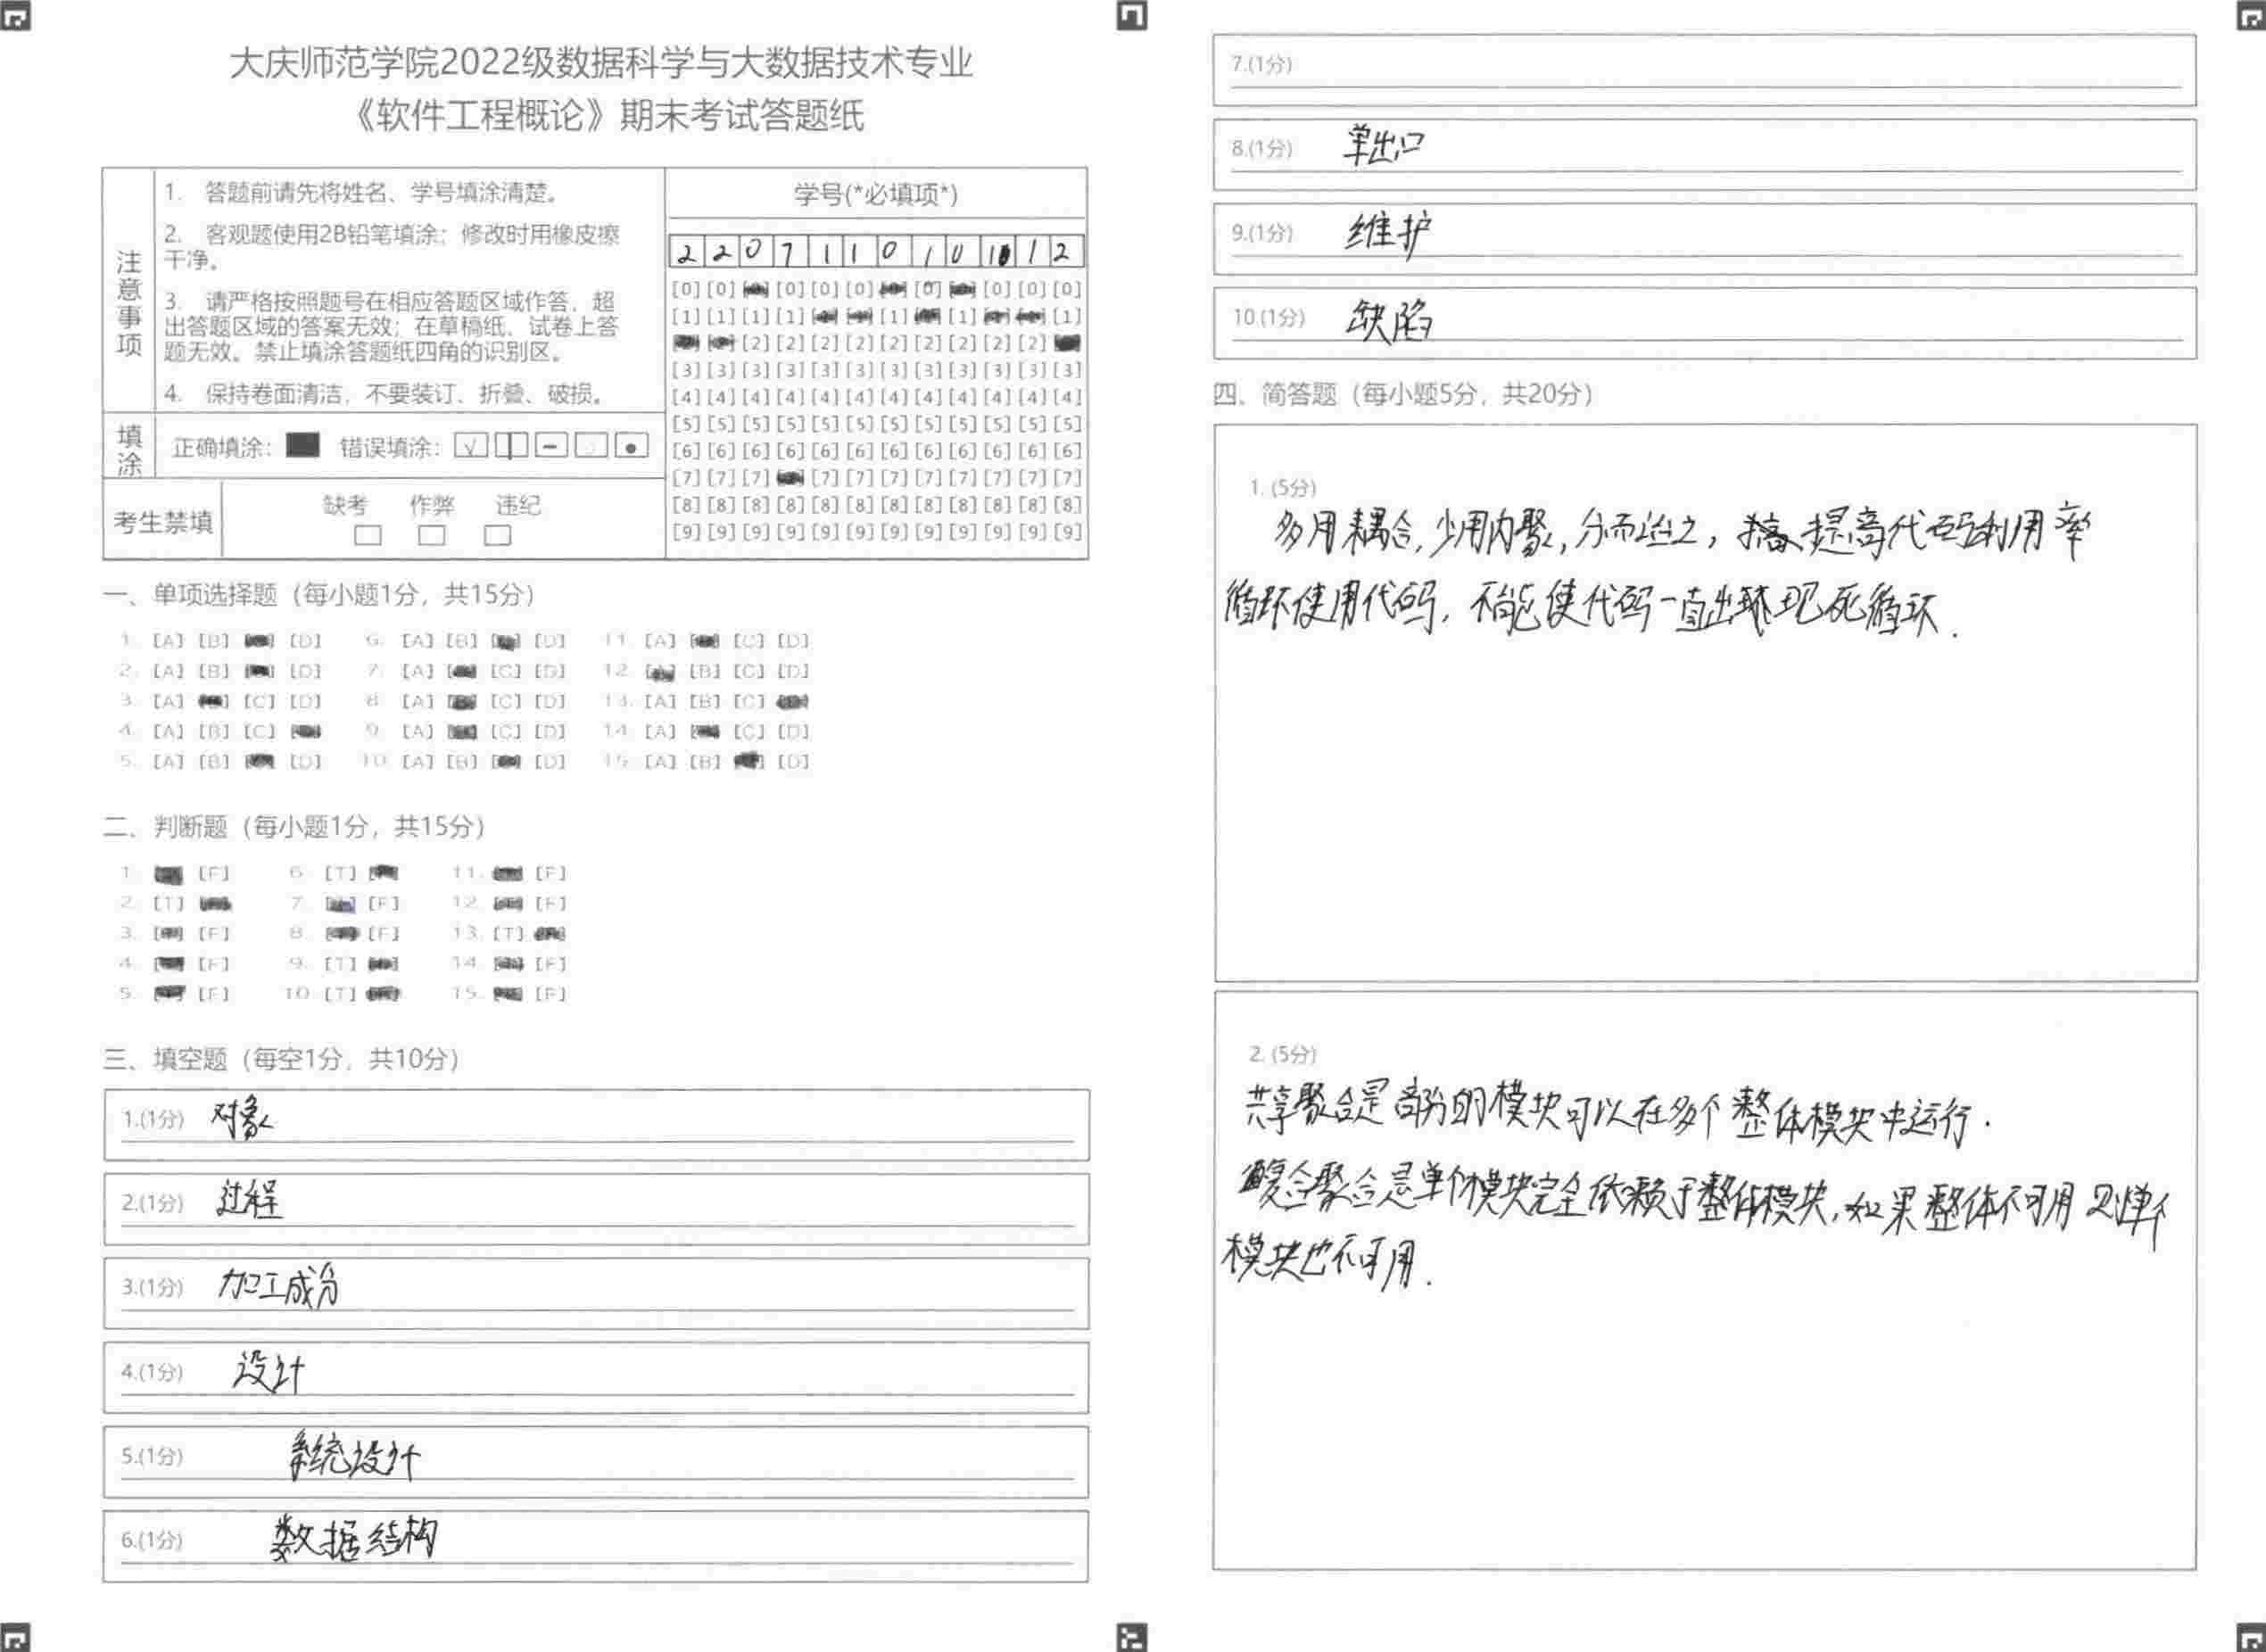 大庆师范学院2022级数据科学与大数据技术专业
《软件工程概论》期末考试答题纸
注意事项
1. 答题前请先将姓名、学号填涂清楚。
2. 客观题使用2B铅笔填涂；修改时用橡皮擦
干净。
3. 请严格按照题号在相应答题区域作答，超
出答题区域的答案无效；在草稿纸、试卷上答
题无效。禁止填涂答题纸四角的识别区。
4. 保持卷面清洁，不要装订、折叠、破损。
填涂
正确填涂： 错误填涂：
考生禁填
缺考 作弊 违纪
学号(*必填项*)
2 2 0 7 1 1 0 1 0 1 1 2
[0] [0] [0] [0] [0] [0] [0] [0] [0]
[1] [1] [1] [1] [1] [1] [1]
[2] [2] [2] [2] [2] [2] [2] [2] [2]
[3] [3] [3] [3] [3] [3] [3] [3] [3] [3] [3] [3]
[4] [4] [4] [4] [4] [4] [4] [4] [4] [4] [4] [4]
[5] [5] [5] [5] [5] [5] [5] [5] [5] [5] [5] [5]
[6] [6] [6] [6] [6] [6] [6] [6] [6] [6] [6] [6]
[7] [7] [7] [7] [7] [7] [7] [7] [7] [7] [7]
[8] [8] [8] [8] [8] [8] [8] [8] [8] [8] [8] [8]
[9] [9] [9] [9] [9] [9] [9] [9] [9] [9] [9] [9]
一、单项选择题（每小题1分，共15分）
1. [A] [B] [D] 6. [A] [B] [D] 11. [A] [C] [D]
2. [A] [B] [D] 7. [A] [C] [D] 12. [B] [C] [D]
3. [A] [C] [D] 8. [A] [C] [D] 13. [A] [B] [C]
4. [A] [B] [C] 9. [A] [C] [D] 14. [A] [C] [D]
5. [A] [B] [D] 10. [A] [B] [D] 15. [A] [B] [D]
二、判断题（每小题1分，共15分）
1. [F] 6. [T] 11. [F]
2. [T] 7. [F] 12. [F]
3. [F] 8. [F] 13. [T]
4. [F] 9. [T] 14. [F]
5. [F] 10. [T] 15. [F]
三、填空题（每空1分，共10分）
1.(1分) 对象
2.(1分) 过程
3.(1分) 加工成分
4.(1分) 设计
5.(1分) 系统设计
6.(1分) 数据结构
7.(1分)
8.(1分) 单出口
9.(1分) 维护
10.(1分) 缺陷
四、简答题（每小题5分，共20分）
1. (5分)
多用耦合，少用内聚，分而治之，提高代码利用率
循环使用代码，不能使代码一直出现死循环．
2. (5分)
共享聚合是部分的模块可以在多个整体模块中运行．
复合聚合是单个模块完全依赖于整体模块，如果整体不可用则单个
模块也不可用．